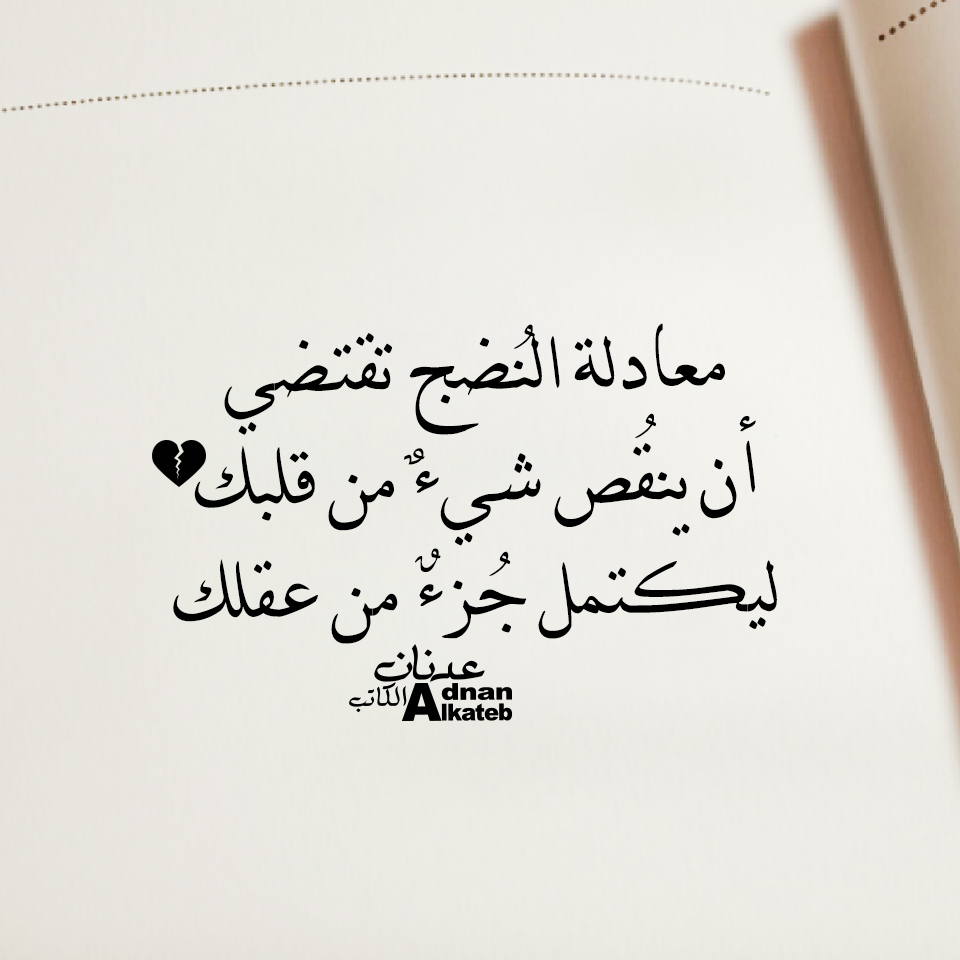 معادلة النُضج تقتضي
أن ينقُص شيءٌ من قلبك💔
ليكتمل جُزءٌ من عقلك
عدنان
الكاتب Adnan
Alkateb